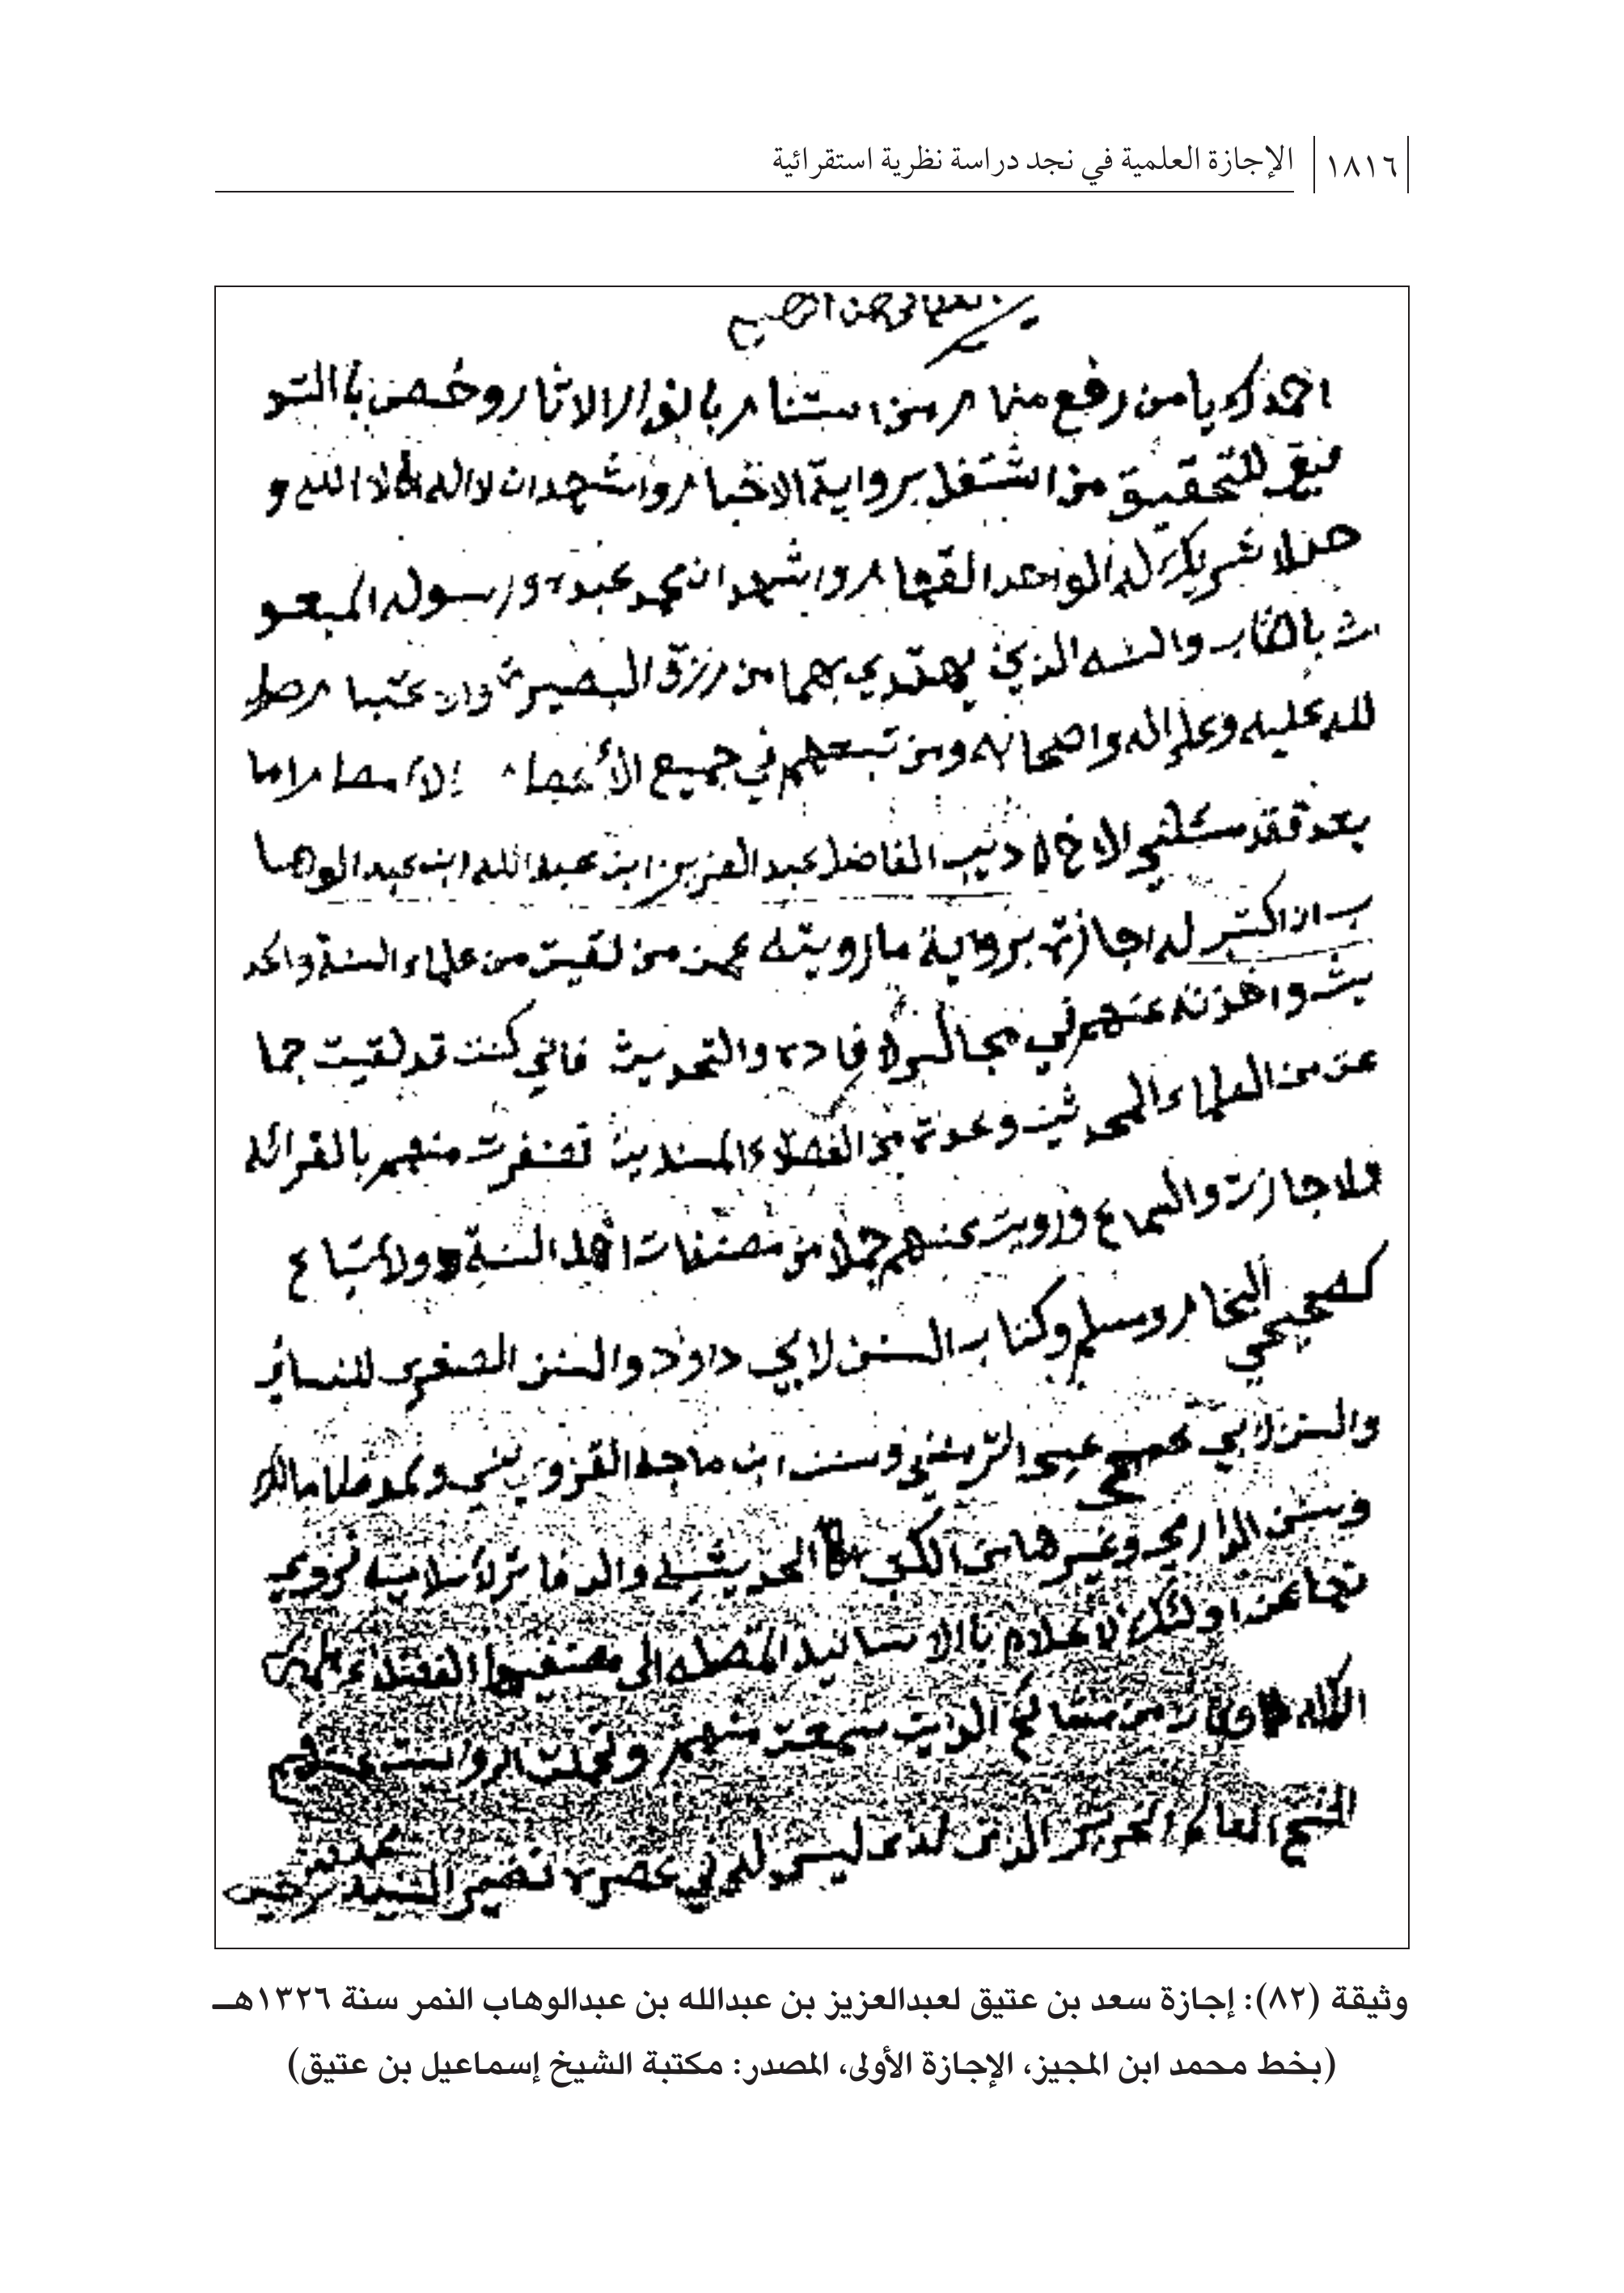 ١٨١٦ الإجازة العلمية في نجد دراسة نظرية استقرائية
الرحمن الرحيم
احمدك يا من رفع منار من استنار بانوار الاثار وخص با التو
فيق للتحقيق من اشتغل برواية الاخبار واشهد ان لا اله الا الله و
حده لا شريك له الواحد القهار واشهد ان محمد عبده ورسوله المبعو
ث بالكتاب والسنه الذي يهتدي بهما من رزق البصيرة والاعتبار صلى
الله عليه وعلى اله واصحابه ومن تبعهم في جميع الأعصار والامصار اما
بعد فقد سئلني الاخ الاديب الفاضل عبد العزيز ابن عبد الله ابن عبد الوها
ب ان اكتب له اجازة برواية ما رويته عمن من لقيت من علماء السنة والحد
يث واخذته عنهم في مجالس الافاده والتحديث فاني كنت قد لقيت جما
عة من العلماء المحدثين وعدة من الفضلاء المسندين فضفرت منهم بالقرائه
والاجازت والسماع ورويت عنهم جملا من مصنفات اهل السنة والاتباع
كصحيحي البخار ومسلم وكتاب السنن لابي داود والسنن الصغرى للنسائي
والسنن لابي عيسى الترمذي وسنن ابن ماجه القزويني وموطا مالك
وسنن الدارمي وغيرها من الكتب الحديثيه والدفاتر الاسلاميه نروي
عن اولئك الاعلام با الاسانيد المتصله الى مصنفيها الفضلاء
من مشائخ الذين سمعت منهم عنهم
الشيخ العالم النحرير الذي ليس له في عصره نضير السيد محمد نذير حسين
وثيقة (٨٢): إجازة سعد بن عتيق لعبدالعزيز بن عبدالله بن عبدالوهاب النمر سنة ١٣٢٦هـ
(بخط محمد ابن المجيز، الإجازة الأولى، المصدر: مكتبة الشيخ إسماعيل بن عتيق)